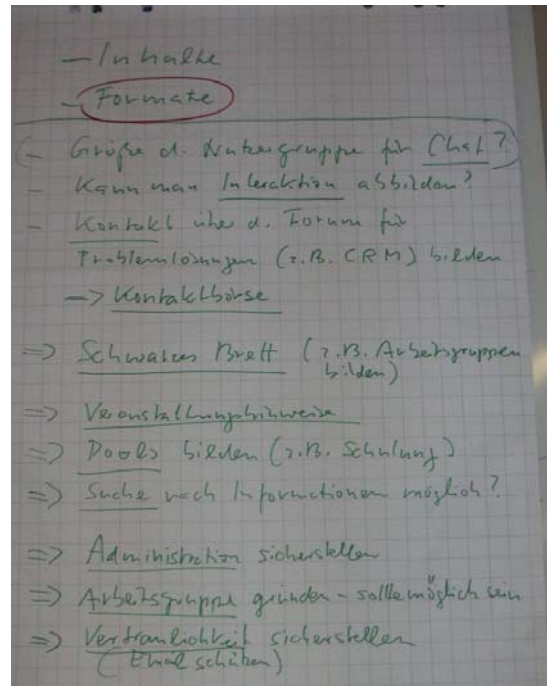 - Inhalte
- Formate
- Größe d. Nutzergruppe für Chat?
- Kann man Interaktion abbilden?
- Kontakt über d. Forum für
Problemlösungen (z.B. CRM) bilden
-> Kontaktbörse
=> Schwarzes Brett (z.B. Arbeitsgruppen
bilden)
=> Veranstaltungshinweise
=> Pools bilden (z.B. Schulung)
=> Suche nach Informationen möglich?
=> Administration sicherstellen
=> Arbeitsgruppe gründen - sollte möglich sein
=> Vertraulichkeit sicherstellen
(Email schützen)